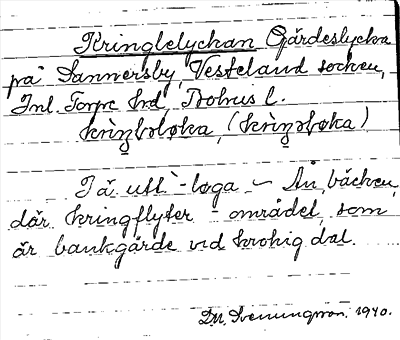 Kringlelyckan Gärdeslycka
på Sannersby, Vesteland socken,
Inl. Torpe hrd, Bohus l.
kriŋləløka, (kriŋəløka)
Iä utt - loga ~ Ån, bäcken
där kringflyter - området, som
är bankgärde vid krokig dal.
1940.